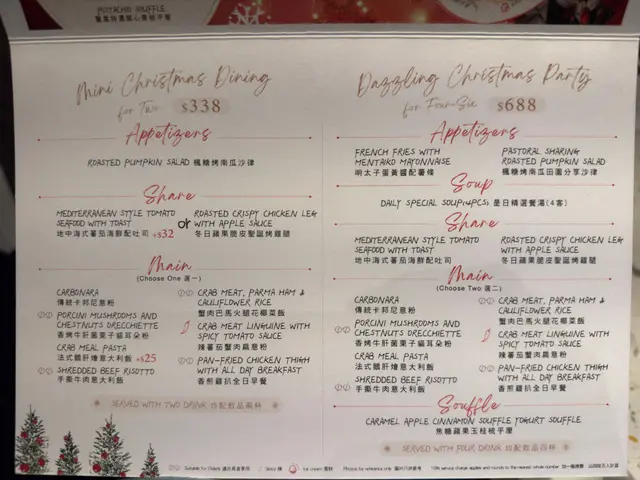 PISTACHIO SOUFFLE
Mini Christmas Dining
for Two $338
Appetizers
ROASTED PUMPKIN SALAD 楓糖烤南瓜沙律
Share
MEDITERRANEAN STYLE TOMATO
SEAFOOD WITH TOAST
地中海式蕃茄海鮮配吐司 +$32
or
ROASTED CRISPY CHICKEN LEG
WITH APPLE SAUCE
冬日蘋果脆皮聖誕烤雞腿
Main
(Choose One 選一)
CARBONARA
傳統卡邦尼意粉
PORCINI MUSHROOMS AND
CHESTNUTS ORECCHIETTE
香烤牛肝菌栗子貓耳朵粉
CRAB MEAL PASTA
法式鵝肝燴意大利飯 +$25
SHREDDED BEEF RISOTTO
手撕牛肉意大利飯
CRAB MEAT, PARMA HAM &
CAULIFLOWER RICE
蟹肉巴馬火腿花椰菜飯
CRAB MEAT LINGUINE WITH
SPICY TOMATO SAUCE
辣蕃茄蟹肉扁意粉
PAN-FRIED CHICKEN THIGH
WITH ALL DAY BREAKFAST
香煎雞扒全日早餐
SERVED WITH TWO DRINK 均配飲品兩杯
Dazzling Christmas Party
for Four-Six $688
Appetizers
FRENCH FRIES WITH
MENTAIKO MAYONNAISE
明太子蛋黃醬配薯條
PASTORAL SHARING
ROASTED PUMPKIN SALAD
楓糖烤南瓜田園分享沙律
Soup
DAILY SPECIAL SOUP(4PCS) 是日精選餐湯(4客)
Share
MEDITERRANEAN STYLE TOMATO
SEAFOOD WITH TOAST
地中海式蕃茄海鮮配吐司
ROASTED CRISPY CHICKEN LEG
WITH APPLE SAUCE
冬日蘋果脆皮聖誕烤雞腿
Main
(Choose Two 選二)
CARBONARA
傳統卡邦尼意粉
PORCINI MUSHROOMS AND
CHESTNUTS ORECCHIETTE
香烤牛肝菌栗子貓耳朵粉
CRAB MEAL PASTA
法式鵝肝燴意大利飯
SHREDDED BEEF RISOTTO
手撕牛肉意大利飯
CRAB MEAT, PARMA HAM &
CAULIFLOWER RICE
蟹肉巴馬火腿花椰菜飯
CRAB MEAT LINGUINE WITH
SPICY TOMATO SAUCE
辣蕃茄蟹肉扁意粉
PAN-FRIED CHICKEN THIGH
WITH ALL DAY BREAKFAST
香煎雞扒全日早餐
Souffle
CARAMEL APPLE CINNAMON SOUFFLE YOGURT SOUFFLE
焦糖蘋果玉桂梳乎厘
SERVED WITH FOUR DRINK 均配飲品四杯
Suitable for Elders 適合長者享用 Spicy 辣 Ice cream 雪糕 Photos for reference only 圖片只供參考 10% service charge applies and rounds to the nearest whole number